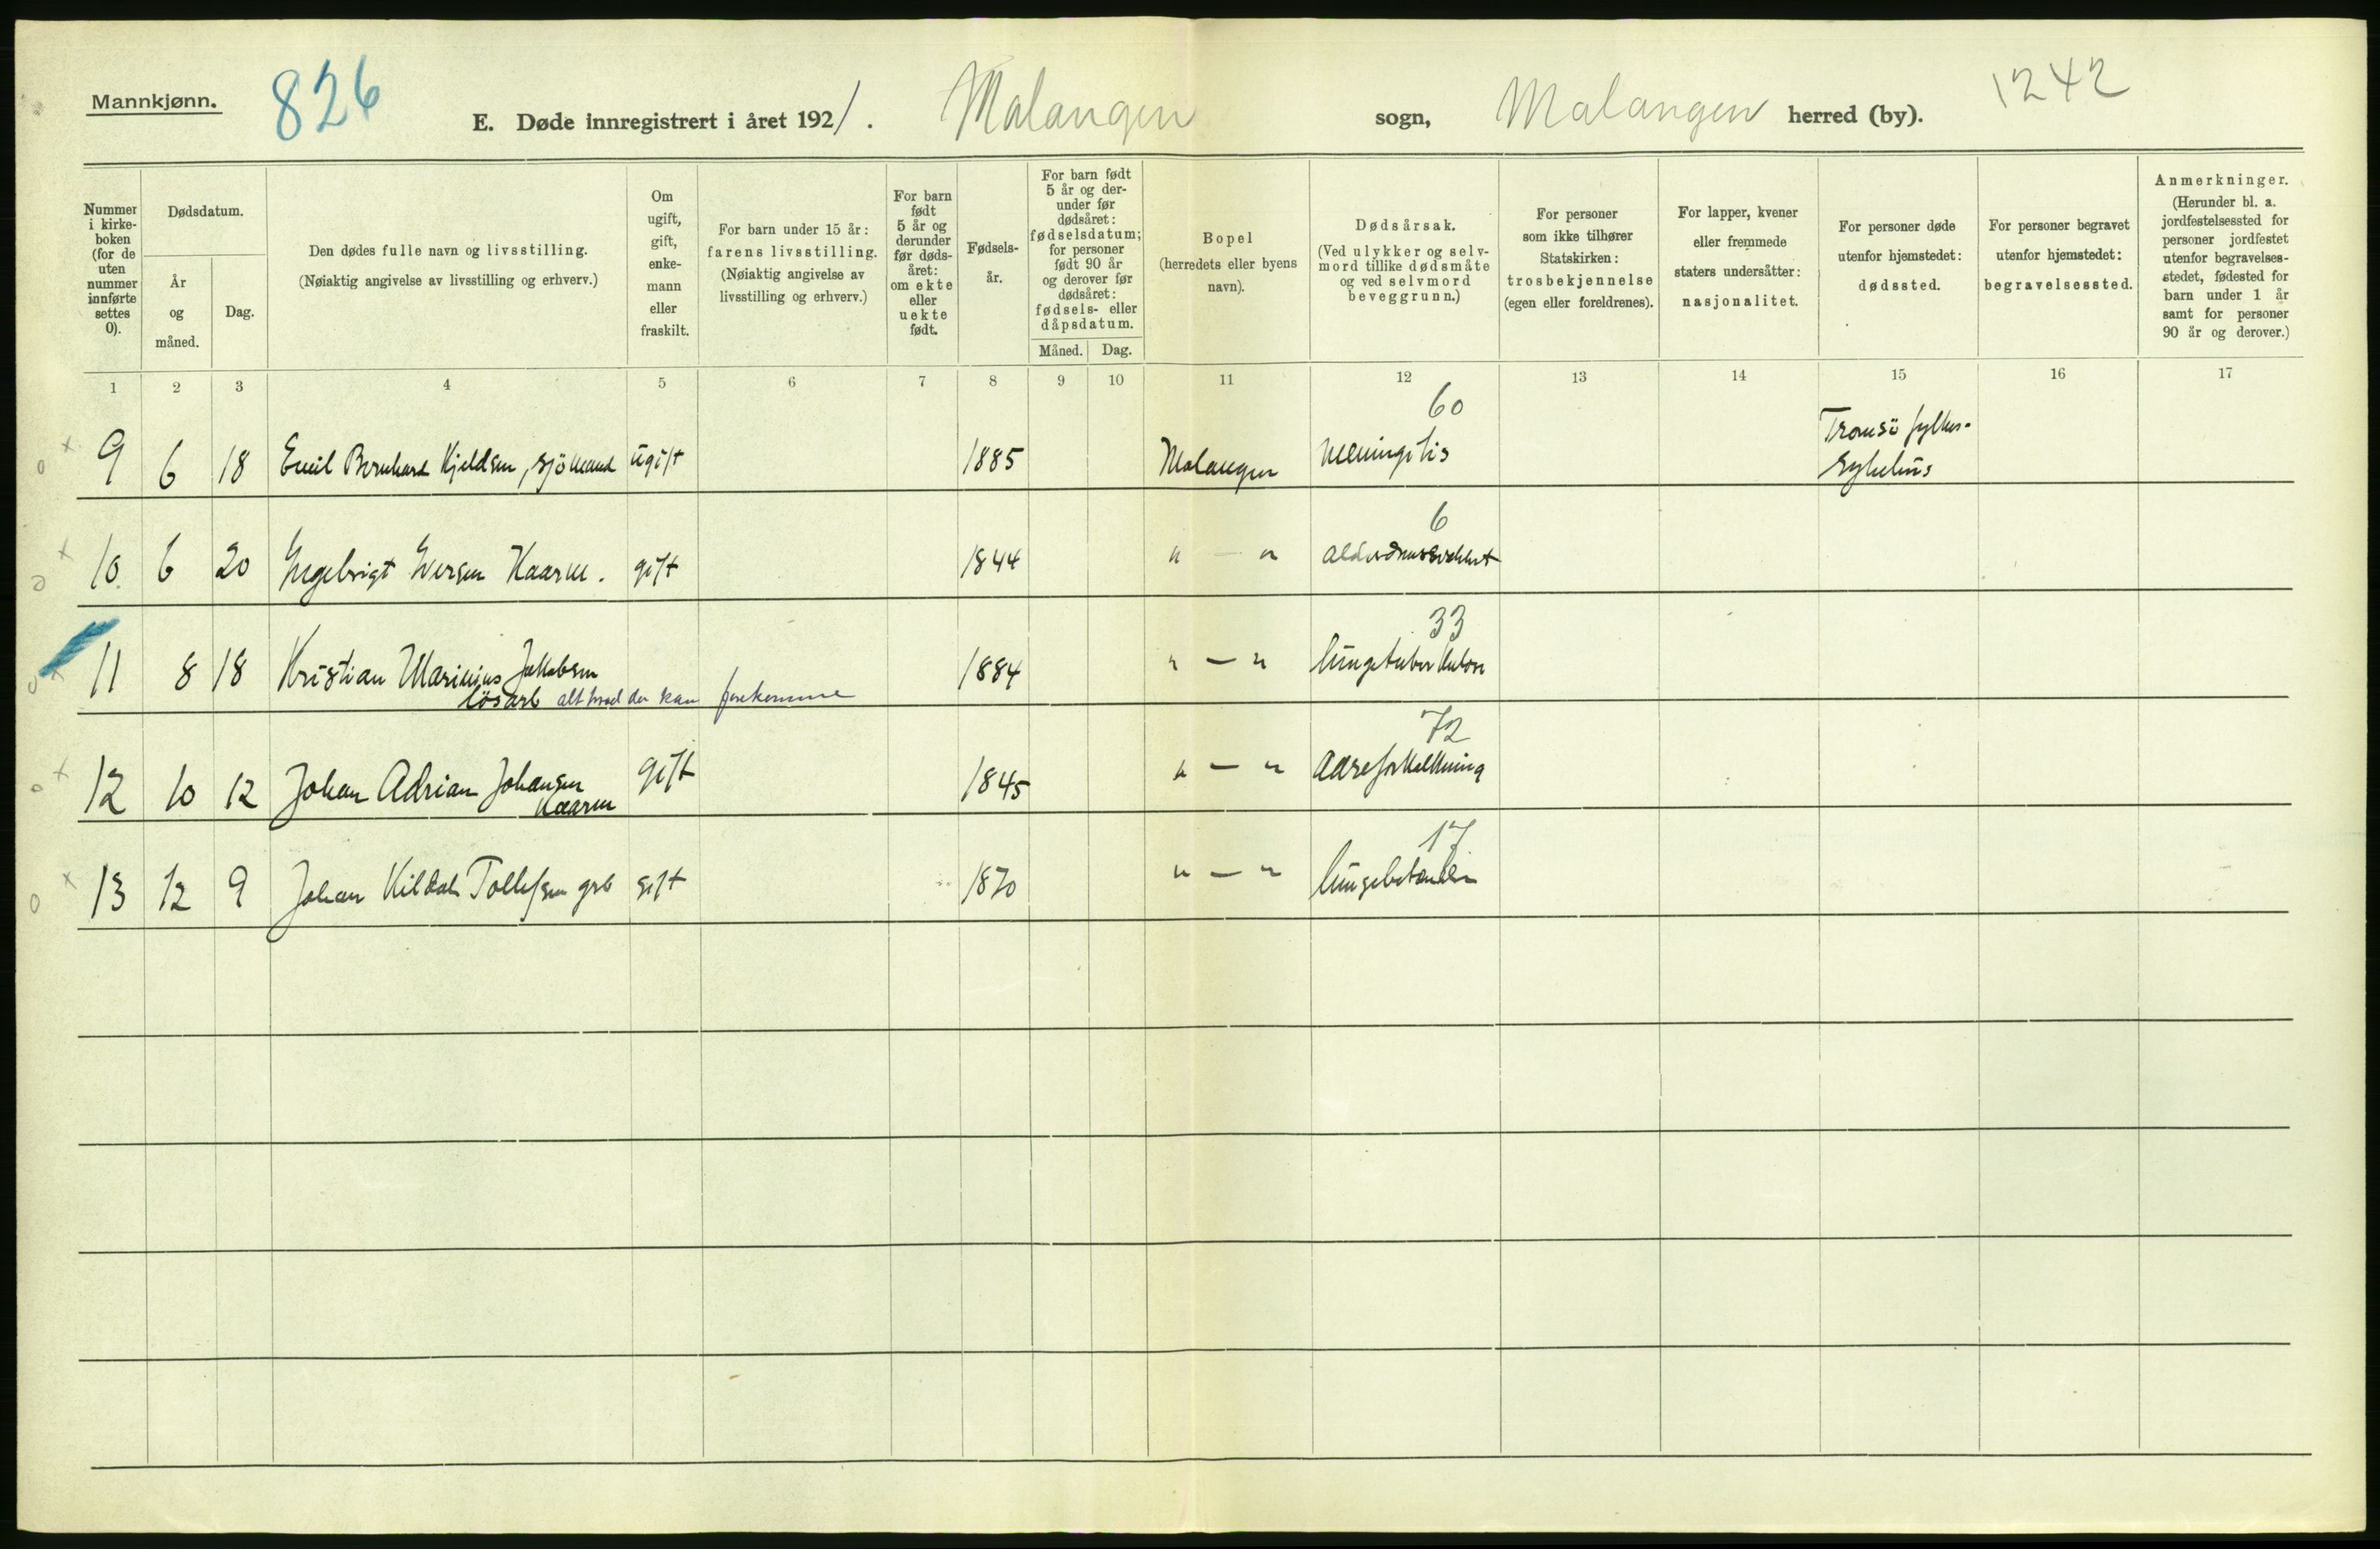 Mannkjønn.
826
E. Døde innregistrert i året 1921. Malangen sogn, Malangen herred (by).
1242
Nummer i kirke-boken (for de uten nummer innførte settes 0).
Dødsdatum.
År og måned.
Dag.
Den dødes fulle navn og livsstilling.
(Nøiaktig angivelse av livsstilling og erhverv.)
Om ugift, gift, enke-mann eller fraskilt.
For barn under 15 år: farens livsstilling.
(Nøiaktig angivelse av livsstilling og erhverv.)
For barn født 5 år og derunder før døds-året: om ekte eller uekte født.
Fødsels-år.
For barn født 5 år og der-under før dødsåret: fødselsdatum; for personer født 90 år og derover før dødsåret: fødsels- eller dåpsdatum.
Måned. Dag.
Bopel
(herredets eller byens navn).
Dødsårsak.
(Ved ulykker og selv-mord tillike dødsmåte og ved selvmord beveggrunn.)
For personer som ikke tilhører Statskirken: trosbekjennelse (egen eller foreldrenes).
For lapper, kvener eller fremmede staters undersåtter: nasjonalitet.
For personer døde utenfor hjemstedet: dødssted.
For personer begravet utenfor hjemstedet: begravelsessted.
Anmerkninger.
(Herunder bl. a. jordfestelsessted for personer jordfestet utenfor begravelses-stedet, fødested for barn under 1 år samt for personer 90 år og derover.)
1 2 3 4 5 6 7 8 9 10 11 12 13 14 15 16 17
60
9 6 18 Emil Bernhard Kjeldsen, sjömand ugift 1885 Malangen Meningitis Tromsö fylkes-
sykehus
6
10. 6 20 Ingebrigt Iversen Kaarm. gift 1844 " — " Alderdomssvakhet
33
11 8 18 Kristian Marinius Jakobsen 1884 " — " lungetuberkulose
lösarb alt hvad der kan forekomme
72
12 10 12 Johan Adrian Johansen gift 1845 " — " Aareforkalkning
Kaarm
17
13 12 9 Johan Kildal Tollefsen grb gift 1870 " — "